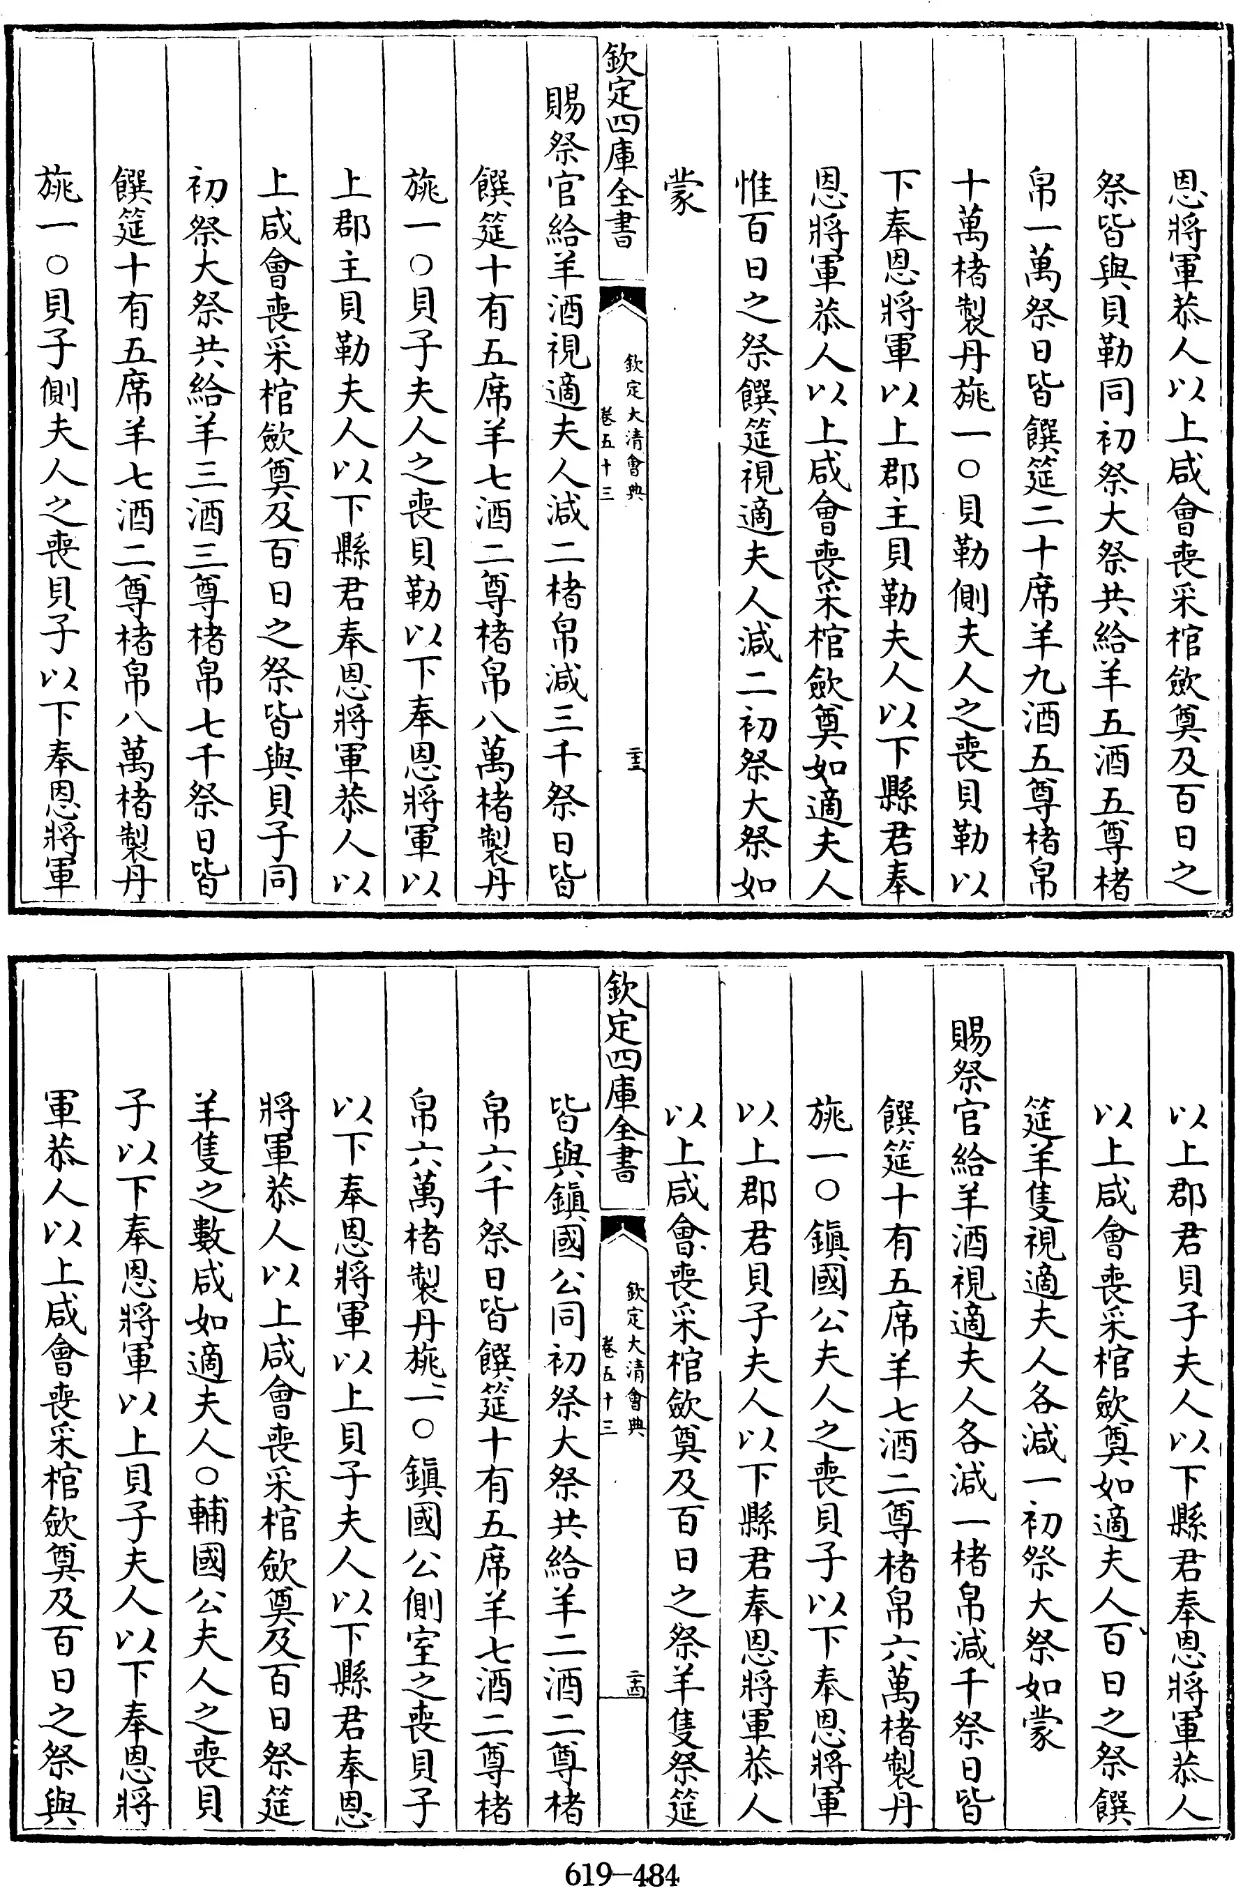 恩將軍恭人以上咸會喪采棺斂奠及百日之
祭皆與貝勒同初祭大祭共給羊五酒五尊楮
帛一萬祭日皆饌筵二十席羊九酒五尊楮帛
十萬楮製丹旐一○貝勒側夫人之喪貝勒以
下奉恩將軍以上郡主貝勒夫人以下縣君奉
恩將軍恭人以上咸會喪采棺斂奠如適夫人
惟百日之祭饌筵視適夫人減二初祭大祭如
蒙
欽定四庫全書
欽定大清會典
卷五十三
二十三
賜祭官給羊酒視適夫人減二楮帛減三千祭日皆
饌筵十有五席羊七酒二尊楮帛八萬楮製丹
旐一○貝子夫人之喪貝勒以下奉恩將軍以
上郡主貝勒夫人以下縣君奉恩將軍恭人以
上咸會喪采棺斂奠及百日之祭皆與貝子同
初祭大祭共給羊三酒三尊楮帛七千祭日皆
饌筵十有五席羊七酒二尊楮帛八萬楮製丹
旐一○貝子側夫人之喪貝子以下奉恩將軍
以上郡君貝子夫人以下縣君奉恩將軍恭人
以上咸會喪采棺斂奠如適夫人百日之祭饌
筵羊隻視適夫人各減一初祭大祭如蒙
賜祭官給羊酒視適夫人各減一楮帛減千祭日皆
饌筵十有五席羊七酒二尊楮帛六萬楮製丹
旐一○鎮國公夫人之喪貝子以下奉恩將軍
以上郡君貝子夫人以下縣君奉恩將軍恭人
以上咸會喪采棺斂奠及百日之祭羊隻祭筵
欽定四庫全書
欽定大清會典
卷五十三
二十四
皆與鎮國公同初祭大祭共給羊二酒二尊楮
帛六千祭日皆饌筵十有五席羊七酒二尊楮
帛六萬楮製丹旐一○鎮國公側室之喪貝子
以下奉恩將軍以上貝子夫人以下縣君奉恩
將軍恭人以上咸會喪采棺斂奠及百日祭筵
羊隻之數咸如適夫人○輔國公夫人之喪貝
子以下奉恩將軍以上貝子夫人以下奉恩將
軍恭人以上咸會喪采棺斂奠及百日之祭與
619-484